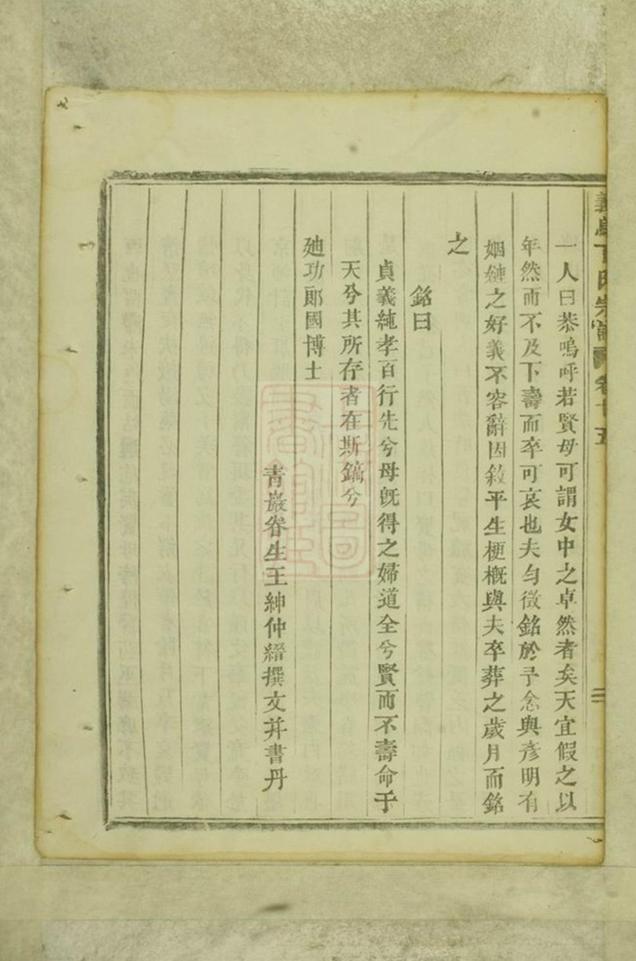 義烏丁氏宗譜 卷十五 二
一人曰恭嗚呼若賢母可謂女中之卓然者矣天宜假之以
年然而不及下壽而卒可哀也夫勻徵銘於予念與彥明有
姻婕之好義不容辭因敘平生梗概與夫卒葬之歲月而銘
之
銘曰
貞義純孝百行先兮母旣得之婦道全兮賢而不壽命于
天兮其所存者在斯鐫兮
廸功郎國博士
青巖眷生王紳仲縉撰文并書丹